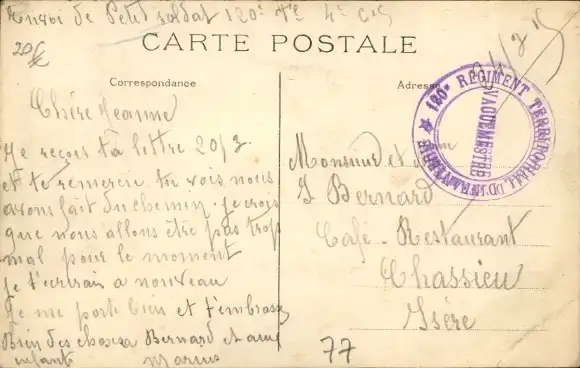 Envoi de Petit soldat 120e 4e Cie
CARTE POSTALE
20
Correspondance
Adresse
120e RÉGIMENT TERRITORIAL D'INFANTERIE
VAGUEMESTRE
Chère Jeanne
Je reçois ta lettre 20/3
et te remercie tu vois nous
avons fait du chemin je crois
que nous allons être pas trop
mal pour le moment
je t'écrirai a nouveau
Je me porte bien et t'embrasse
Bien des choses a Bernard et aux
enfants Marius
Monsieur et
J Bernard
Café-Restaurant
Chassieu
Isère
77